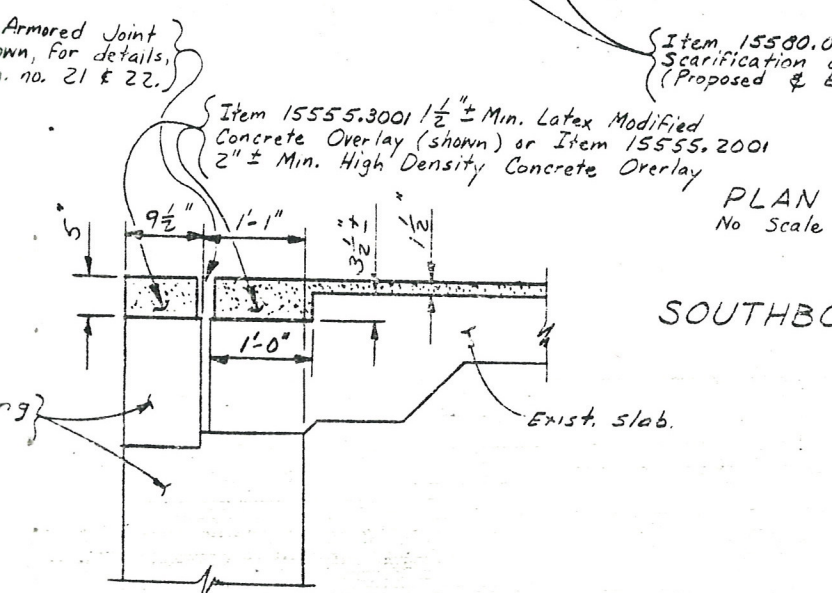 Armored Joint
own, for details,
no. 21 & 22.
Item 15580.0
Scarification
(Proposed & E
Item 15555.3001 1½"± Min. Latex Modified
Concrete Overlay (shown) or Item 15555.2001
2"± Min. High Density Concrete Overlay
PLAN
No Scale
5"
9½"
1'-1"
3½"±
1½"
SOUTHBO
1'-0"
ng
Exist. slab.